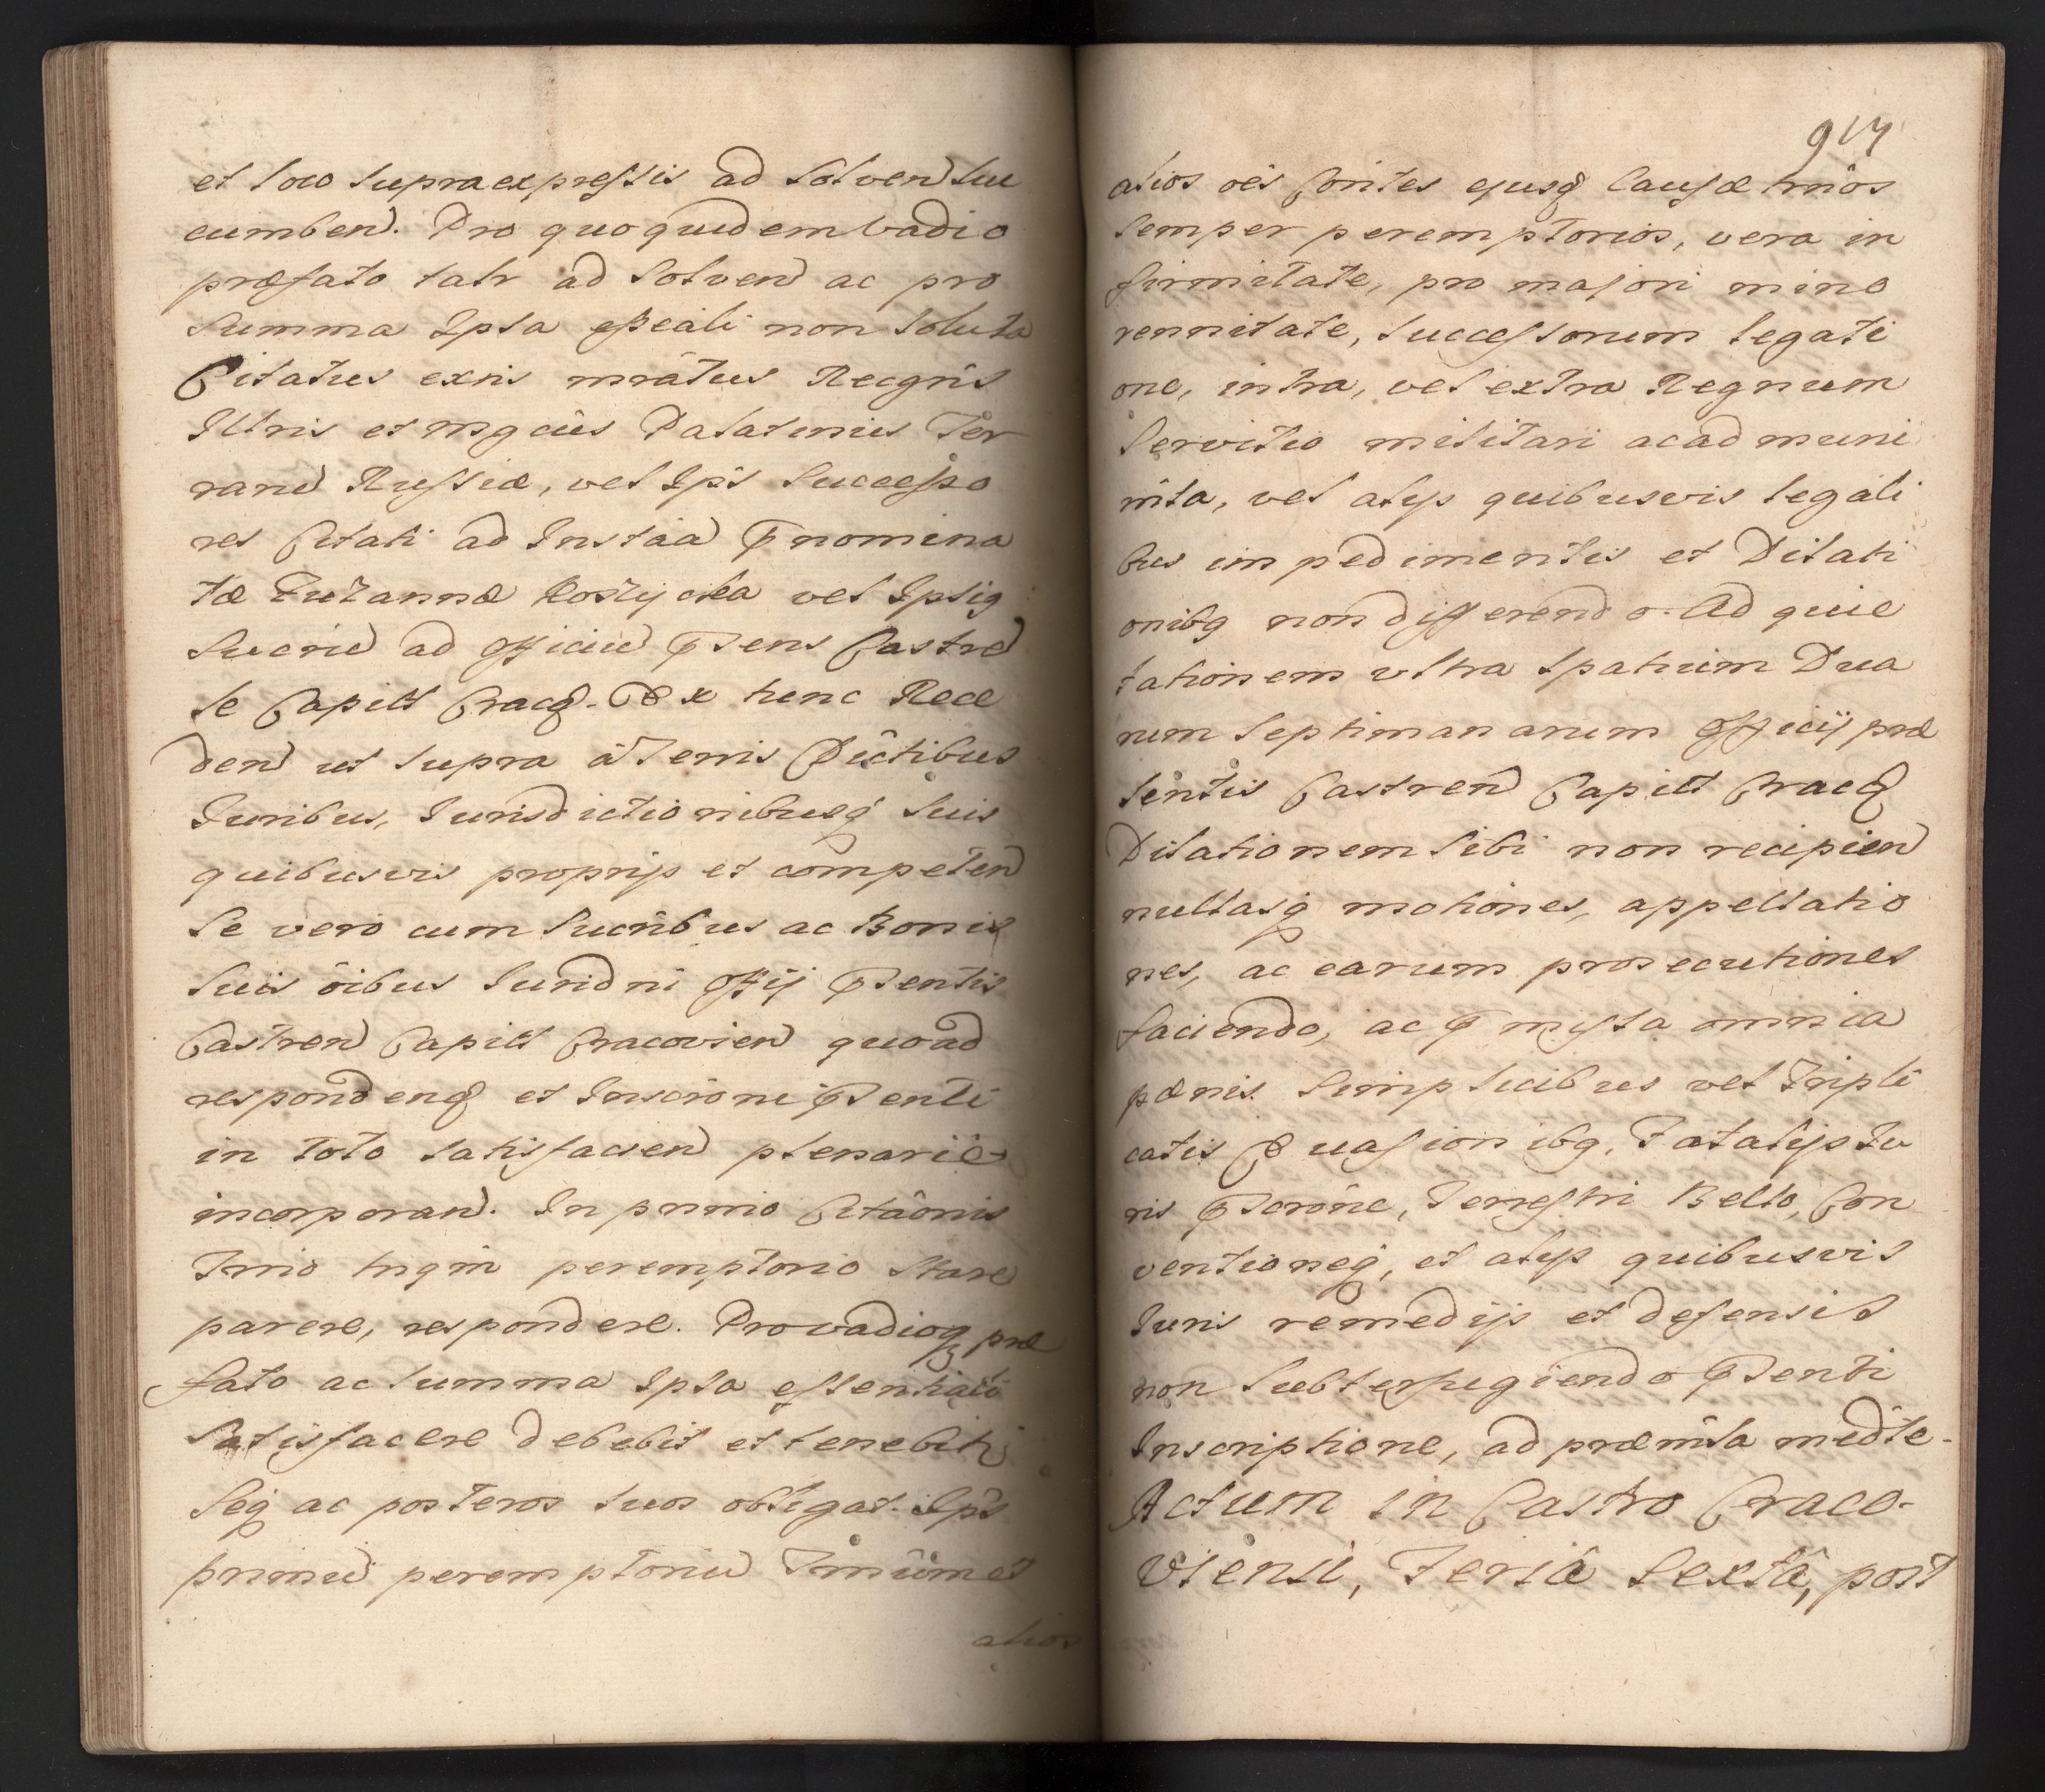 et loco supraexpressis ad solvend suc
cumbend. Pro quoquidem vadio
præfato talr ad solvend ac pro
Summa Ipsa eßeali non soluta
Citatus exns mrâtus Recgns
Illris et mgcus Palatinus Ter
rarud Russiæ, vel Ips Successo
res Citati ad Instâa pnomina
tæ Zuzannæ vel Ipsiq
Sucrud ad Officiud psens Castrd
se Capitl Cracq. Ex tunc Rece
dend ut supra â Terris Dictibus
Juribus, Jurisdictionibusq suis
quibusvis proprijs et competend
Se vero cum Sucribus ac Bonis
suis ôibus Juridni Offij psentis
Castrend Capitl Cracoviend quoad
respondenq et Inscrôni psenti
in toto satisfaciend plenariè
incorporand. In primo Citâonis
Trno tnqm peremptorio stare
parere, respondere. Provadioq præ
fato ac summa Ipsa essentiali
Satisfacere debebit et tenebitj
Seq ac posteros suos obligat. Ips
primud peremptoriud Tmiûm et
alios
917
alios oês Contes ejusq Causæ tmîos
semper peremptorios, vera in
firmitate, pro majori mino
rennitate, successorum legati
one, intra, vel extra Regnum
Servitio militari ac ad muni
mta, vel alijs quibusvis legali
bus impedimentis et Dilati
onibq non differendo. Ad quie
tationem ultra spatium Dua
rum Septimanarum Officij præ
sentis Castrend Capitl Cracq
Dilationem sibi non recipiend
nullasq motiones, appellatio
nes, ac earum prosecutiones
faciendo, ac pmissa omnia
pænis simplicibus vel tripli
catis Evasionibq, Fatalijs Ju
ris pscrône, Terrestri Bello, Con
ventioneq, et alijs quibusvis
Juris remedijs et defensis
non subterfugiendo psenti
Inscriptione, ad præmîsa medîte.
Actum in Castro Craco-
viensi, Feriâ sextâ, post